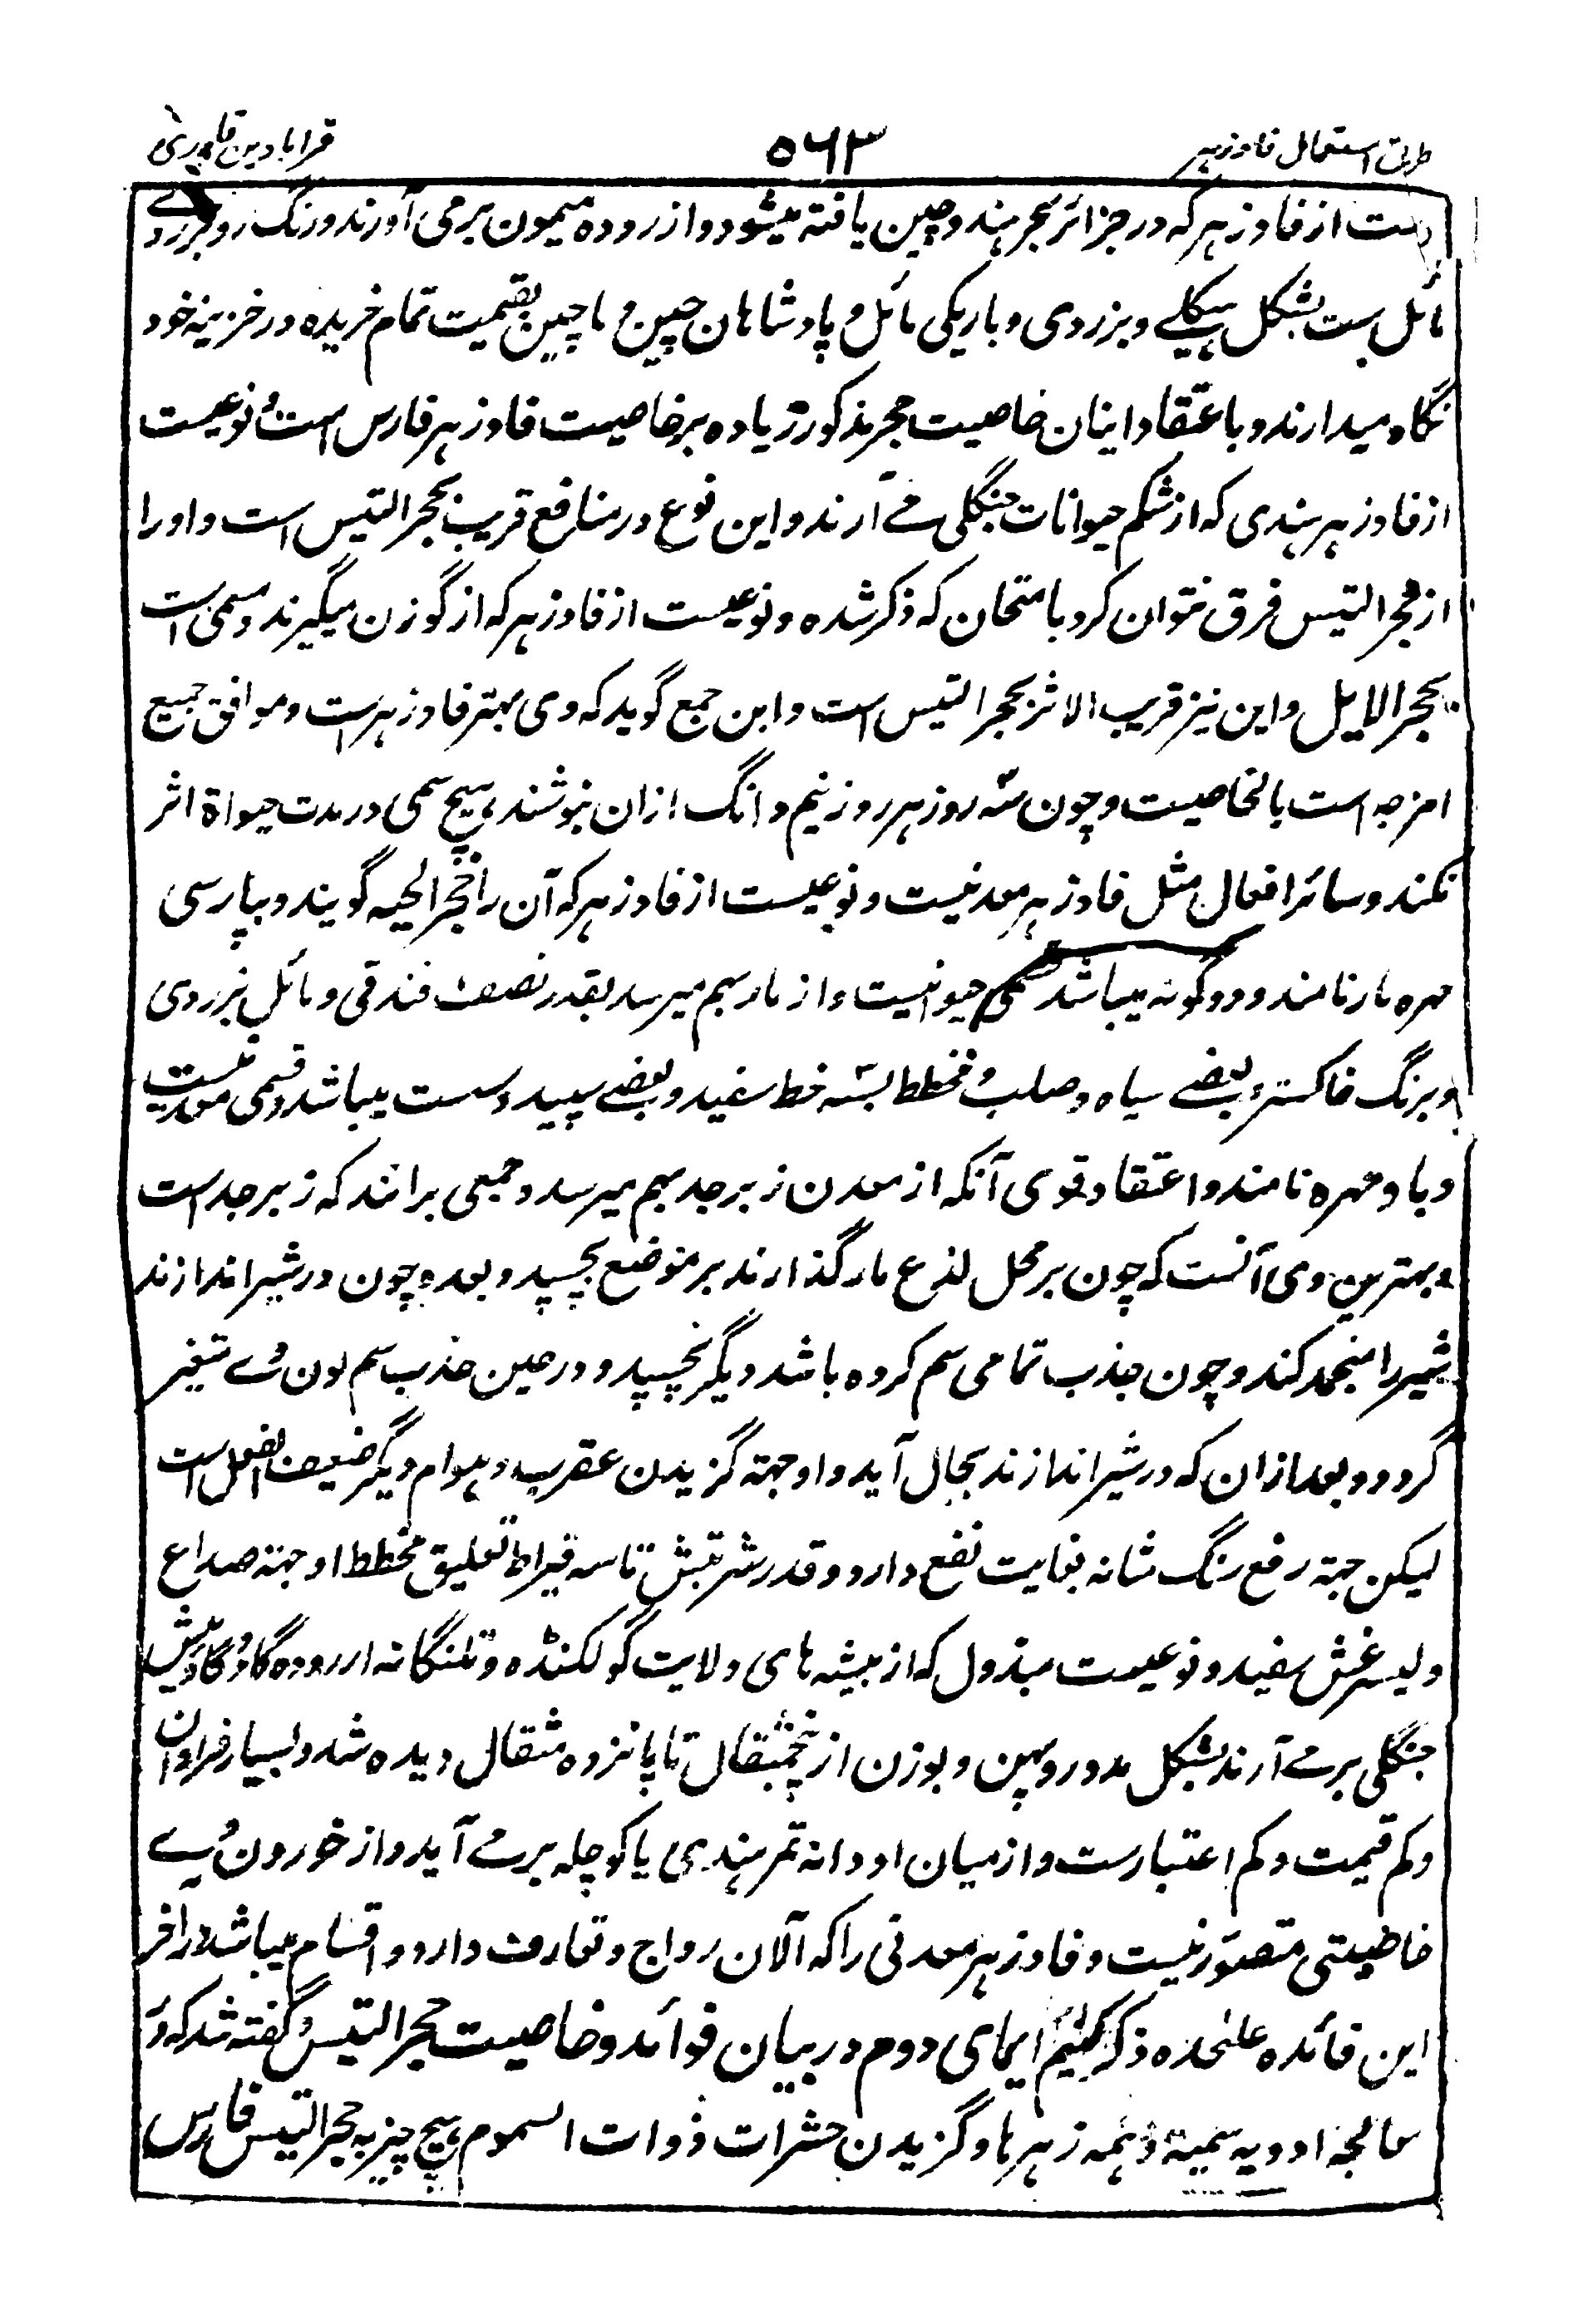 طریق استعمال فادزهر ۵۶۳ قرابادین قادری
ست از فادزهر که در جزائر بحر هند و چین یافته میشود و از روده میمون برمی آورند و رنگ
مائل ست بشکل هیکلے و بزردی و باریکی مائل و پادشاهان چین و ماچین بقیمت تمام خریده در خزینه خود
نگاه میدارند و باعتقاد اینان خاصیت حجر مذکور زیاده بر خاصیت فادزهر فارس است و نوعیست
از فادزهر هندی که از شکم حیوانات جنگلی مے آرند و این نوع در منافع قریب بحجر التیس است و او را
از حجر التیس فرق نتوان کرد بامتحان که ذکر شده و نوعیست از فادزهر که از گوزن میگیرند و مسمی است
بحجر الایل و این نیز قریب الاثر بحجر التیس است و ابن جمع گوید که وی بهتر فادزهرست و موافق جمیع
امزجه است بالخاصیت و چون سه روز هر روز نیم دانگ ازان بنوشند هیچ سمی در مدت حیوة اثر
نکند و سائر افعال مثل فادزهر معدنیست و نوعیست از فادزهر که آن را حجر الحیه گویند و بپارسی
مهره مار نامند و دو گونه میباشد قسمی حیوانیست و از مار بهم میرسد بقدر نصف فندقی و مائل بزردی
و برنگ خاکستر و بعضے سیاه و صلب و مخطط بسه خط سفید و بعضے سپید و سست میباشد و قسمی معدنیست
و بادمهره نامند و اعتقاد قوی آنکه از معدن زبرجد بهم میرسد و جمعی برانند که زبرجد است
و بهترین وی آنست که چون بر محل لذع مار گذارند بر موضع بچسپد و بعده چون در شیر اندازند
شیر را منجمد کند و چون جذب تمامی سم کرده باشد دیگر نچسپد و در حین جذب سم لون وے متغیر
گردد و بعد ازان که در شیر اندازند بحال آید و او جهته گزیدن عقرب و هوام دیگر ضعیف الفعل است
لیکن جهته رفع سنگ مثانه بغایت نفع دارد و قدر شربتش تا سه قیراط تعلیق مخطط او جهته صداع
و لیسرغش سفید و نوعیست مبذول که از بیشه های ولایت گولکنده و تلنگانه از روده گاو و گاومیش
جنگلی برمے آرند بشکل مدور و پهن و بوزن از پنجمثقال تا پانزده مثقال دیده شد و بسیار فراوان
و کم قیمت و کم اعتبارست و از میان او دانه تمر هندی یا کوچله برمے آید و از خوردن وے
خاصیتی متصور نیست و فادزهر معدنی را که الآن رواج و تعارف دارد و اقسام میباشد در آخر
این فائده علٰحده ذکر کنیم ایمای دوم در بیان فوائد و خاصیت حجر التیس گفته شد که در
معالجه ادویه سمیة و همه زهرها و گزیدن حشرات ذوات السموم هیچ چیز به حجر التیس فارس